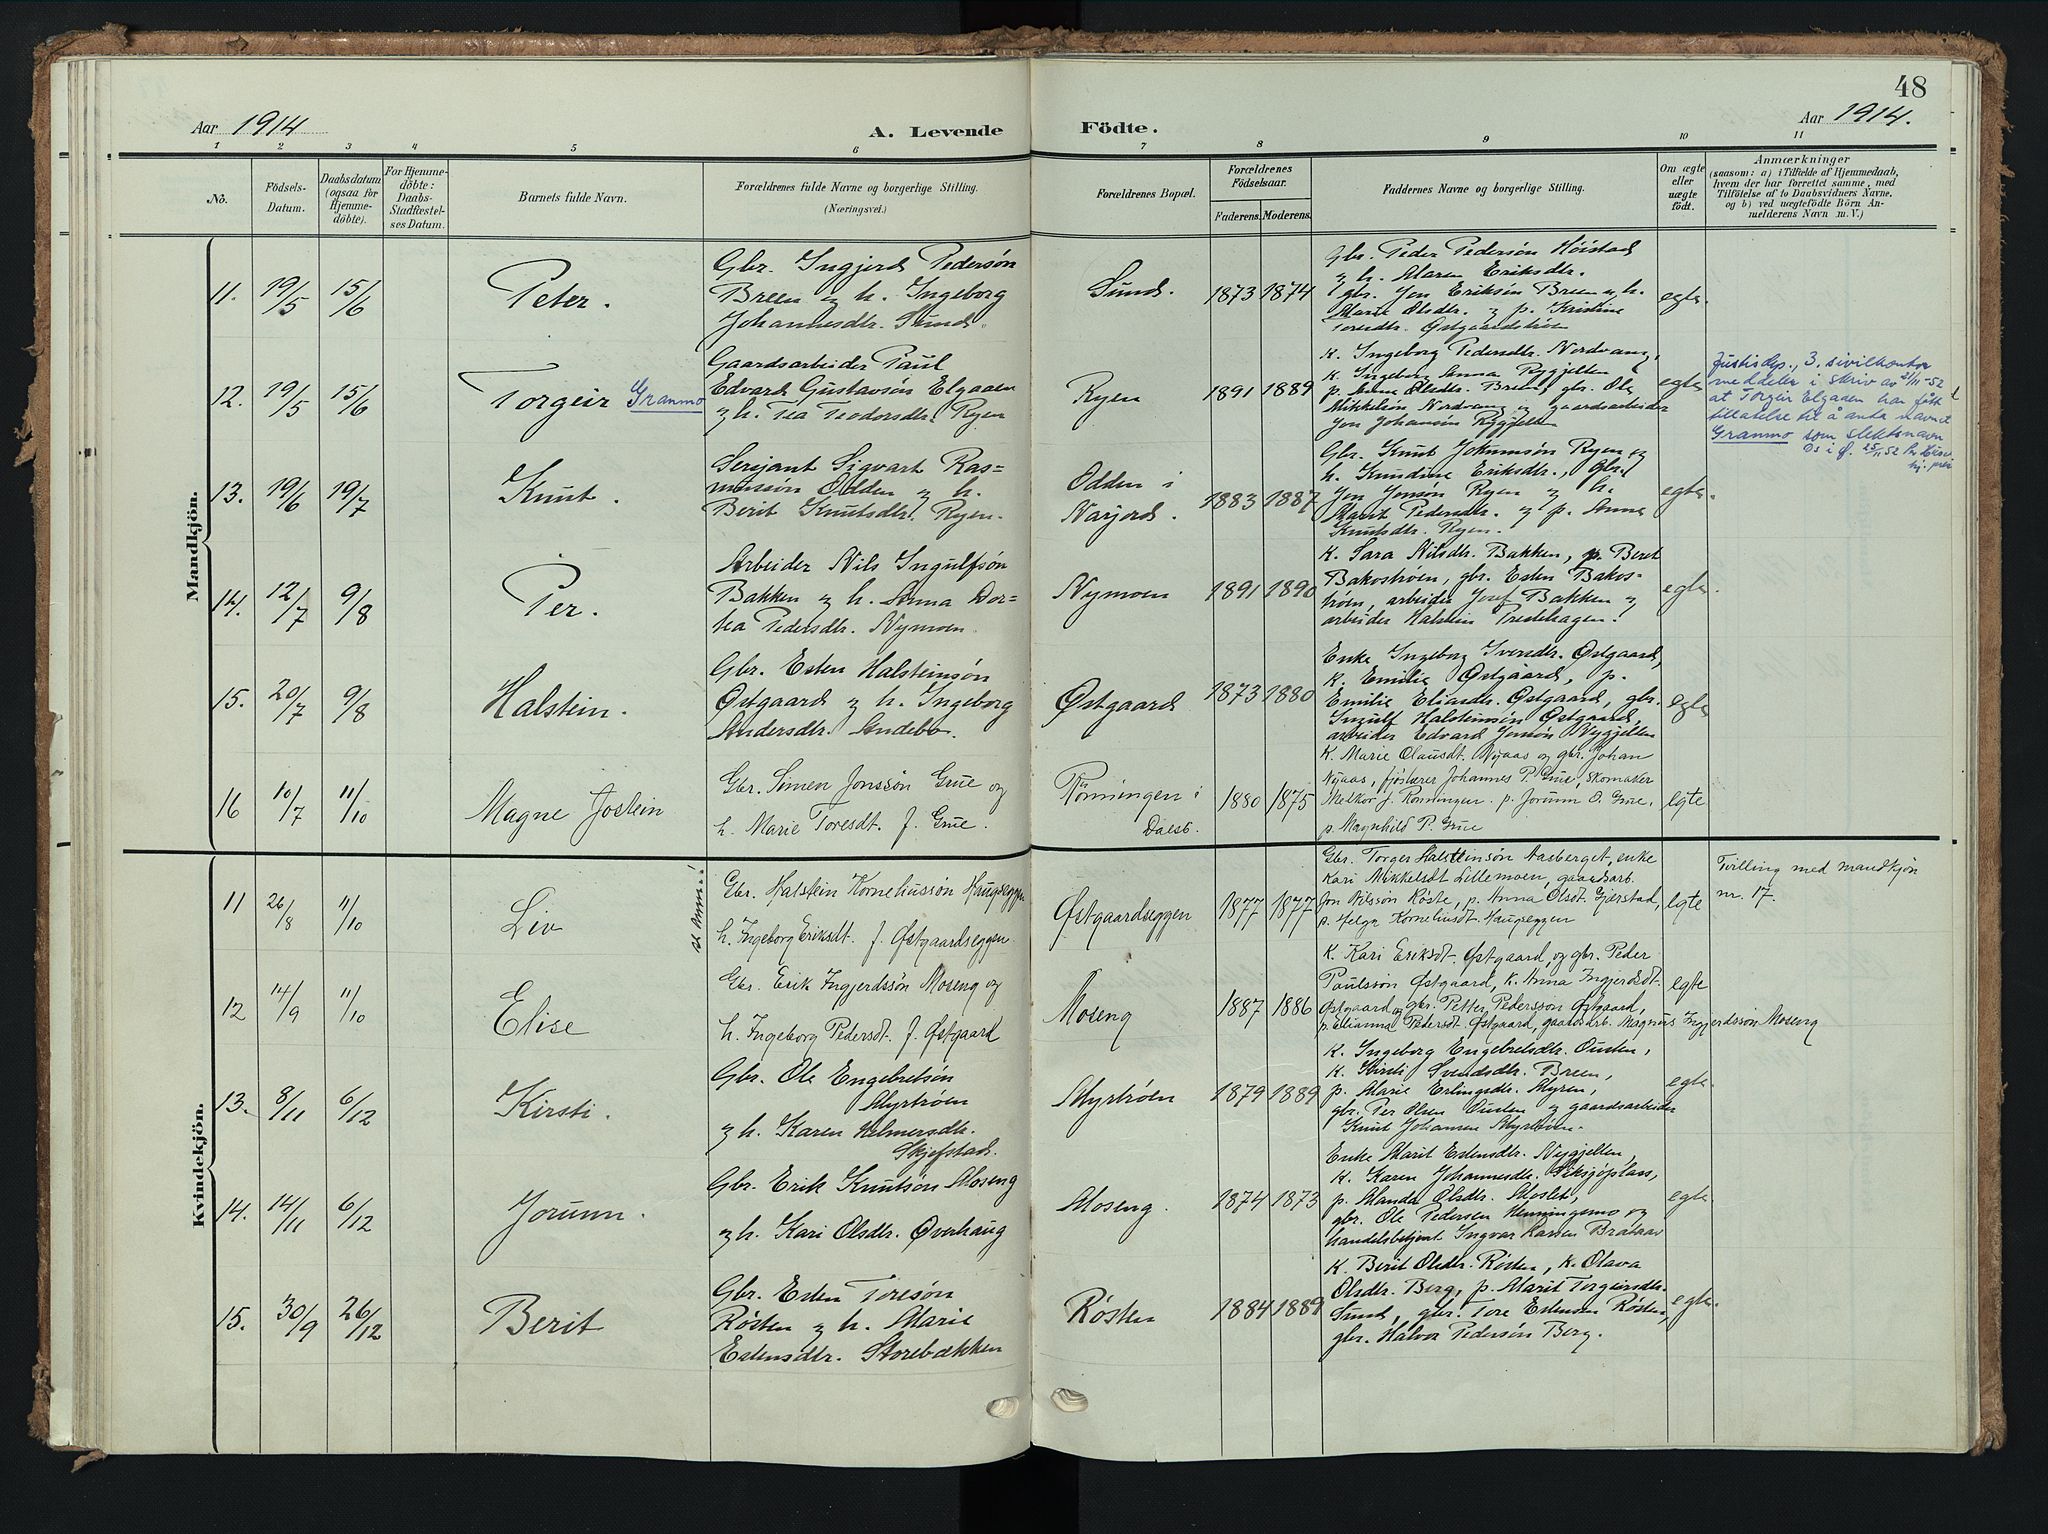 48
Aar 1914
A. Levende Födte.
Aar 1914.
1 2 3 4 5 6 7 8 9 10 11
No.
Födsels-
Datum.
Daabsdatum
(ogsaa for
Hjemme-
döbte).
For Hjemme-
döbte:
Daabs-
Stadfæstel-
ses Datum.
Barnets fulde Navn.
Forældrenes fulde Navne og borgerlige Stilling.
(Næringsvei.)
Forældrenes Bopæl.
Forældrenes
Födselsaar.
Faderens. Moderens.
Faddernes Navne og borgerlige Stilling.
Om ægte
eller
uægte
født.
Anmærkninger
(saasom: a) i Tilfælde af Hjemmedaab,
hvem der har forrettet samme, med
Tilföielse af to Daabsvidners Navne.
og b) ved uægtefödte Börn An-
melderens Navn m. V.)
Mandkjön.
11. 19/5 15/6 Peter.
Gbr. Ingjerd Pedersön
Breen og h. Ingeborg
Johannesdtr. Sund.
Sund. 1873 1874
Gbr. Peder Pedersön Höistad
og h. Maren Eriksdtr.
gbr. Jon Eriksön Breen og h.
Marie Olsdtr. og p. Kristine
Toresdtr. Østgaardströen
egte.
12. 19/5 15/6 Torgeir Granmo
Gaardsarbeider Paul
Edvard Gustavsön Elgaaen
og h. Tea Teodorsdtr. Ryen
Ryen 1891 1889
K. Ingeborg Pedersdtr. Nordvang,
K. Ingeborg Anna Ryggjellen
p. Anne Olsdtr. Breen, gbr. Ole
Mikkelsön Nordvang og gaardsarbeider
Jon Johansen Ryggjellen
egte
Justisdep., 3. sivilkontor
meddeler i skriv av 21/11-52
at Torgeir Elgaaen har fått
tillatelse til å anta navnet
Granmo som slektsnavn
Os i Ø. 25/11 52
13. 19/6 19/7 Knut.
Sersjant Sigvart Ras-
mussön Odden og h.
Berit Knutsdtr. Ryen.
Odden i
Narjord. 1883 1887
Gbr. Knut Jokumsön Ryen og
h. Gundine Eriksdtr., Gbr.
Jon Jonsön Ryen og h.
Marit Pedersdtr. og p. Anna
Knutsdtr. Ryen.
egte.
14. 12/7 9/8 Per.
Arbeider Nils Ingulfsön
Bakken og h. Anna Dor-
tea Pedersdtr. Nymoen.
Nymoen 1891 1890
K. Sara Nilsdtr. Bakken, p. Beret
Bakoströen, gbr. Esten Bakos-
tröen, arbeider Josef Bakken og
arbeider Halstein Prestehagen.
egte.
15. 20/7 9/8 Halstein.
Gbr. Esten Halsteinsön
Østgaard og h. Ingeborg
Andersdtr. Andebo.
Østgaard 1873 1880
Enke Ingeborg Svensdtr. Østgaard,
K. Emilie Østgaard, p.
Emilie Eliasdtr. Østgaard, gbr.
Ingulf Halsteinsön Østgaard,
arbeider Edvard Jonsön Nygjelten
egte
16 10/7 11/10 Magne Jostein
Gbr. Simen Jonssön Grue og
h. Marie Toresdt. f. Grue.
Rønningen i
Dalsb. 1880 1875
K. Marie Olausdt. Nyaas og gbr. Johan
Nyaas, fjøskarer Johannes P. Grue, skomaker
Melkor J. Rønningen. p. Jorunn O. Grue,
p. Magnhild P. Grue
egte
Kvindekjön.
11 26/8 11/10 Liv
se anm.:
Gbr. Halstein Korneliussön Haugseggen
h. Ingeborg Eriksdt. f. Østgaardseggen
Østgaardseggen 1877 1877
Gbr. Torger Halsteinsön Aasberget, enke
Kari Mikkelsdt Lillemoen, gaardsarb.
Jon Nilsson Röste, p. Anna Olsdt. Gjerstad,
p. Helga Korneliusdt. Haugseggen
egte
Tvilling med mandkjön
nr. 17.
12 14/9 11/10 Elise
Gbr. Erik Ingjerdssön Moseng og
h. Ingeborg Pedersdt. f. Østgaard
Moseng 1887 1886
K. Kari Eriksdt. Østgaard, og gbr. Peder
Paulssön Østgaard, K. Anna Ingjerdsdt.
Østgaard og gbr. Petter Pederssön Østgaard,
p. Elianna Pedersdt. Østgaard, gaardsarb. Magnus Ingjerdssön Moseng
egte
13. 8/11 6/12 Kirsti.
Gbr. Ole Engebretsön
Myrtröen
og h. Karen Helmersdtr.
Skjefstad.
Myrtröen 1879 1889
K. Ingeborg Engebretsdtr. Ousten,
K. Kirsti Svendsdtr. Breen,
p. Marie Erlingsdtr. Myren,
gbr. Per Olsen Ousten og gaardsarbeider
Knut Johansen Myrtröen.
egte.
14. 14/11 6/12 Jorunn.
Gbr. Erik Knutsön Moseng
og h. Kari Olsdtr. Øverhaug
Moseng. 1874 1873
Enke Marit Estensdtr. Nygjelten,
K. Karen Johannesdtr.
p. Manda Olsdtr. Moslet,
gbr. Ole Pedersen Henningsmo og
handelsbetjent Ingvar Hansen
egte
15. 30/9 26/12 Berit
Gbr. Esten Toresön
Røsten og h. Marie
Estensdtr. Storebækken
Røsten 1884 1889
K. Berit Olsdtr. Røsten, K. Olava
Olsdtr. Berg, p. Marit Torgersdtr.
Sund, gbr. Tore Estensen Røsten,
gbr. Halvor Pedersön Berg.
egte.